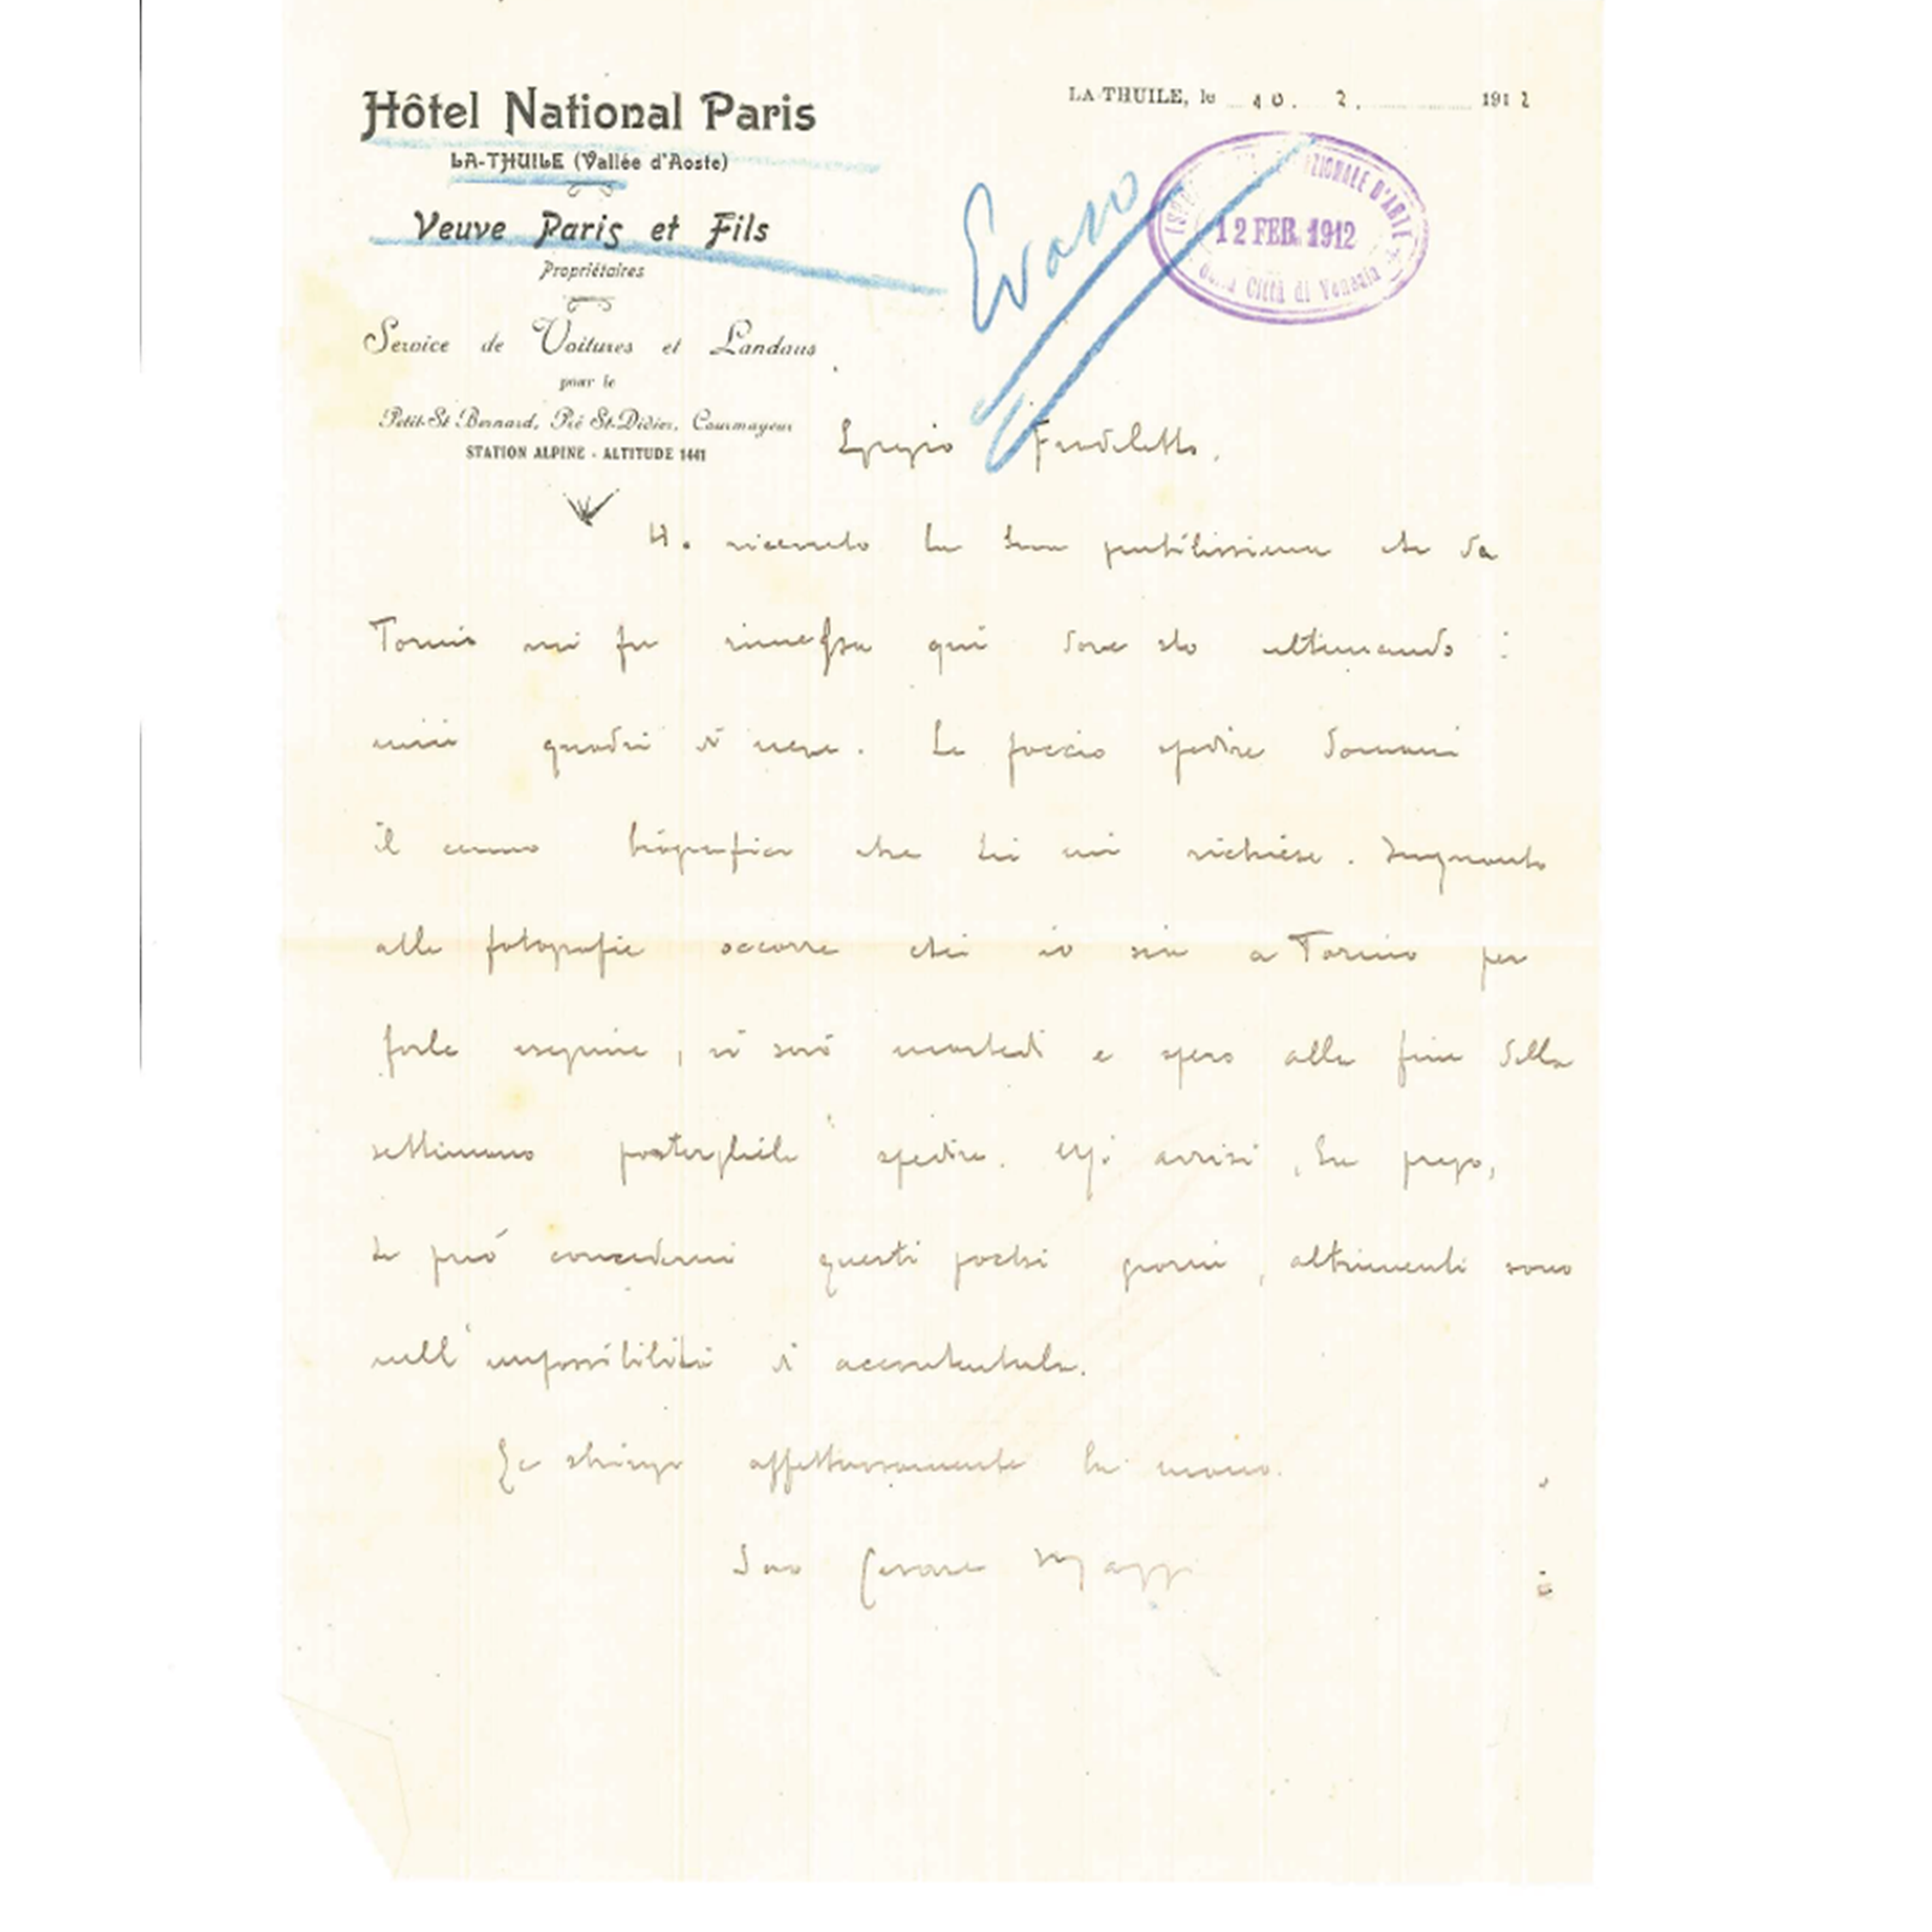 Hôtel National Paris
LA-THUILE (Vallée d'Aoste)
Veuve Paris et Fils
Propriétaires
Service de Voitures et Landaus
pour le
Petit-St Bernard, Pré St-Didier, Courmayeur
STATION ALPINE - ALTITUDE 1441
LA-THUILE, le 10. 2. 1912
Evaso
ZIONALE D'ARTE
12 FEB. 1912
della Città di Venezia
Egregio Fradeletto,
Ho ricevuto la sua gentilissima che da
Torino mi fu rimessa qui dove sto ultimando i
miei quadri di neve. Le faccio spedire domani
il cenno biografico che Lei mi richiese. Inquanto
alle fotografie occorre che io sia a Torino per
farle eseguire, vi sarò martedì e spero alla fine della
settimana spedire. Mi avvisi, La prego,
se può concedermi questi pochi giorni, altrimenti sono
nell'impossibilità di accontentarla.
Le stringo affettuosamente la mano.
Suo Cesare Maggi